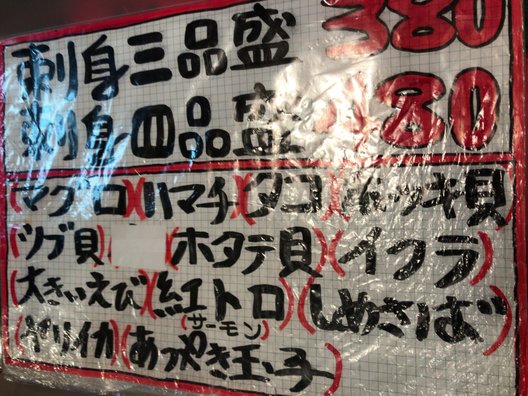 刺身三品盛 380
刺身四品盛 480
(マグロ)(ハマチ)(タコ)(ホッキ貝)
(ツブ貝) (ホタテ貝)(イクラ)
(大きいえび)(紅トロ(サーモン))(しめさば)
(ヤリイカ)(あつやき玉子)